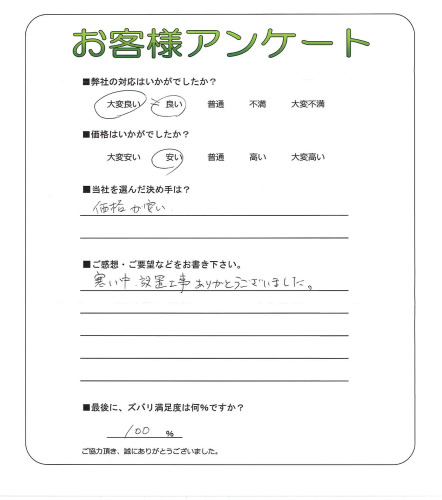 お客様アンケート
■弊社の対応はいかがでしたか？
大変良い 良い 普通 不満 大変不満
■価格はいかがでしたか？
大変安い 安い 普通 高い 大変高い
■当社を選んだ決め手は？
価格が安い
■ご感想・ご要望などをお書き下さい。
寒い中、設置工事ありがとうございました。
■最後に、ズバリ満足度は何％ですか？
100 ％
ご協力頂き、誠にありがとうございました。